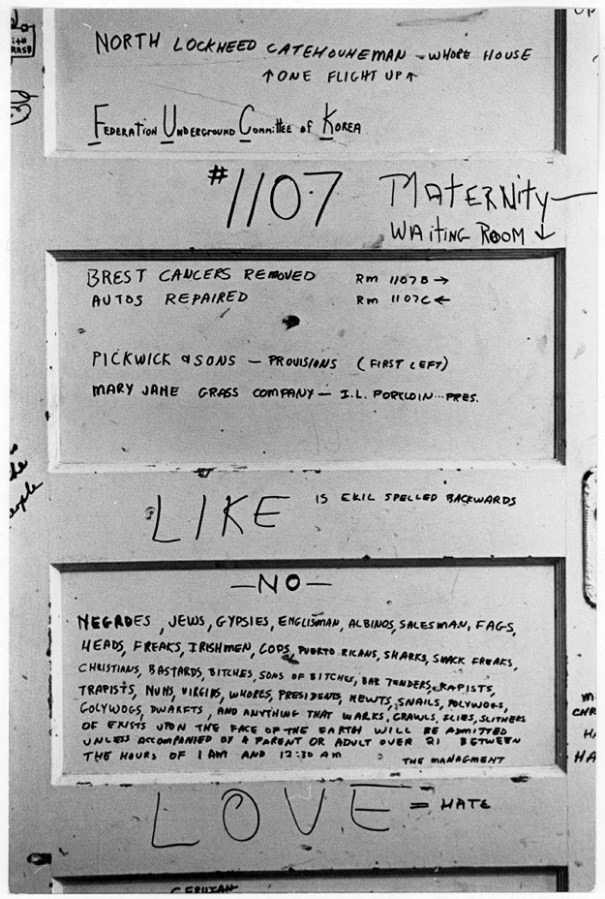 NORTH LOCKHEED CATEHOUHEMAN - WHORE HOUSE
↑ ONE FLIGHT UP ↑
FEDERATION UNDERGROUND COMMITTEE OF KOREA
#1107
MATERNITY
WAITING ROOM ↓
BREST CANCERS REMOVED Rm 1107B →
AUTOS REPAIRED Rm 1107C ←
PICKWICK & SONS - PROVISIONS (FIRST LEFT)
MARY JANE GRASS COMPANY - I.L. POPCLOIN...PRES.
LIKE IS EKIL SPELLED BACKWARDS
-NO-
NEGROES, JEWS, GYPSIES, ENGLISMAN, ALBINOS, SALESMAN, FAGS,
HEADS, FREAKS, IRISHMEN, GODS, PUERTO RICANS, SHARKS, SMACK FREAKS,
CHRISTIANS, BASTARDS, BITCHES, SONS OF BITCHES, BAR TENDERS, RAPISTS,
TRAPISTS, NUNS, VIRGINS, WHORES, PRESIDENTS, NEWTS, SNAILS, POLYWOGS,
GOLYWOGS, DWARFTS, AND ANYTHING THAT WALKS, CRAWLS, FLIES, SLITHERS
OF EXISTS UPON THE FACE OF THE EARTH WILL BE ADMITTED
UNLESS ACCOMPANIED BY A PARENT OR ADULT OVER 21 BETWEEN
THE HOURS OF 1 AM AND 12:30 AM
THE MANAGMENT
LOVE = HATE